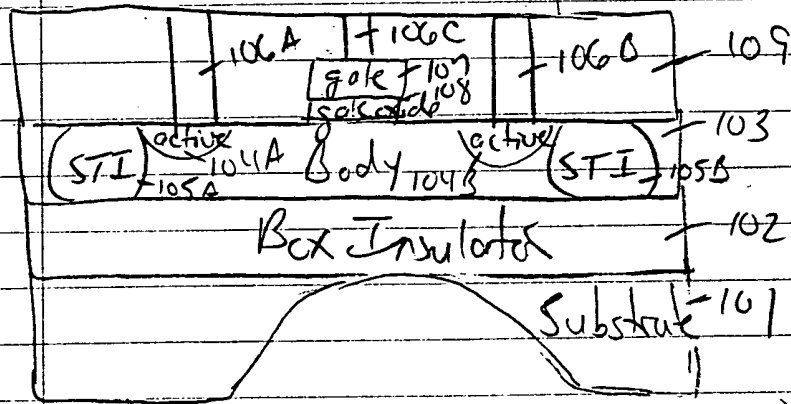 106A 106C 106B 109
gate 107
gate oxide 108
active active 103
STI 104A Body 104B STI 105B
105A
Box Insulator 102
Substrate 101